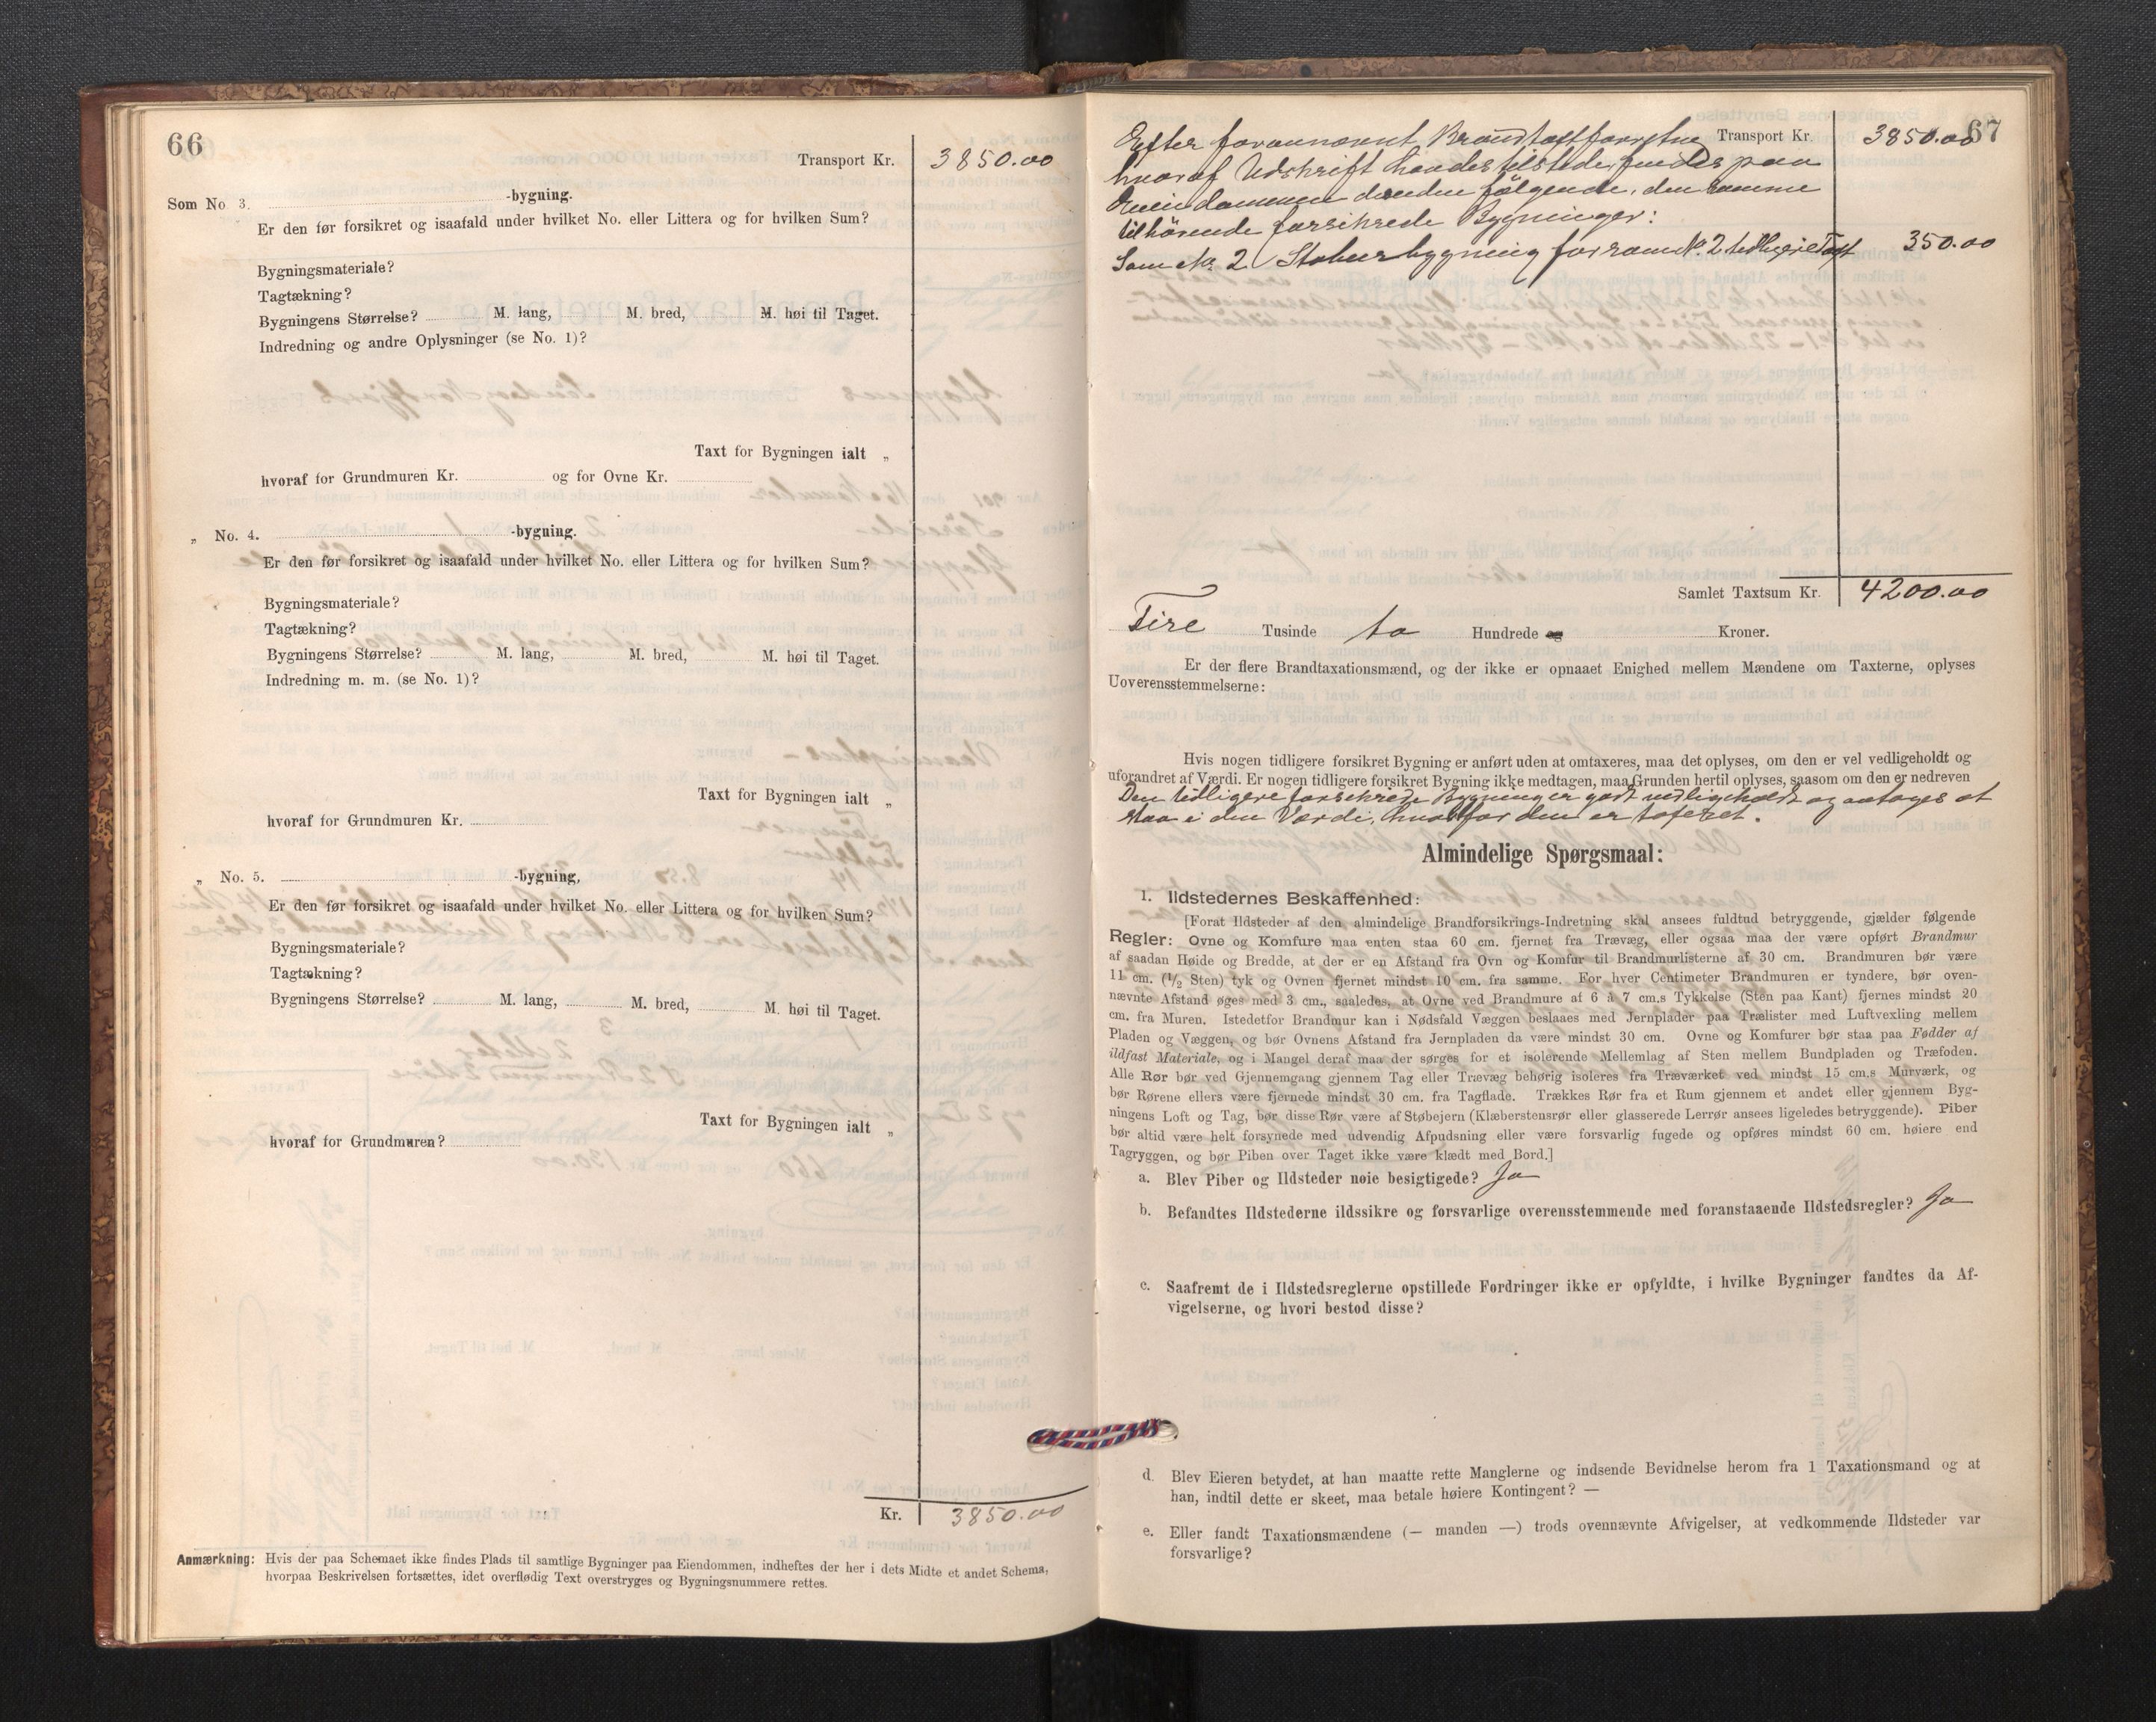 66
Transport Kr. 3850.00
Som No 3. -bygning.
Er den før forsikret og isaafald under hvilket No. eller Littera og for hvilken Sum?
Bygningsmateriale?
Tagtækning?
Bygningens Størrelse? M. lang, M. bred, M. høi til Taget.
Indredning og andre Oplysninger (se No. 1)?
Taxt for Bygningen ialt „
hvoraf for Grundmuren Kr. og for Ovne Kr.
„ No. 4. -bygning.
Er den før forsikret og isaafald under hvilket No. eller Littera og for hvilken Sum?
Bygningsmateriale?
Tagtækning?
Bygningens Størrelse? M. lang, M. bred, M. høi til Taget.
Indredning m. m. (se No. 1)?
Taxt for Bygningen ialt „
hvoraf for Grundmuren Kr.
„ No. 5. -bygning,
Er den før forsikret og isaafald under hvilket No. eller Littera og for hvilken Sum?
Bygningsmateriale?
Tagtækning?
Bygningens Størrelse? M. lang, M. bred, M. høi til Taget.
Taxt for Bygningen ialt „
hvoraf for Grundmuren?
Kr. 3850.00
Anmærkning: Hvis der paa Schemaet ikke findes Plads til samtlige Bygninger paa Eiendommen, indheftes der her i dets Midte et andet Schema,
hvorpaa Beskrivelsen fortsættes, idet overflødig Text overstryges og Bygningsnummere rettes.
67
Transport Kr. 3850.00
Efter forannævnt Brandtaxtforretning
hvoraf Udskrift havdes tilstede findes paa
Eiendommen desuden følgende, den samme
tilhørende forsikrede Bygninger:
Som No 2 Stabursbygning forram No. 2 tidligere Taxt 350.00
Samlet Taxtsum Kr. 4200.00
Fire Tusinde to Hundrede og Kroner.
Er der flere Brandtaxationsmænd, og der ikke er opnaaet Enighed mellem Mændene om Taxterne, oplyses
Uoverensstemmelserne:
Hvis nogen tidligere forsikret Bygning er anført uden at omtaxeres, maa det oplyses, om den er vel vedligeholdt og
uforandret af Værdi. Er nogen tidligere forsikret Bygning ikke medtagen, maa Grunden hertil oplyses, saasom om den er nedreven
Den tidligere forsikrede Bygning er godt vedligeholdt og antages at
staa i den Værdi, hvorfor den er taxeret.
Almindelige Spørgsmaal:
1. Ildstedernes Beskaffenhed:
[Forat Ildsteder af den almindelige Brandforsikrings-Indretning skal ansees fuldtud betryggende, gjælder følgende
Regler: Ovne og Komfure maa enten staa 60 cm. fjernet fra Trævæg, eller ogsaa maa der være opført Brandmur
af saadan Høide og Bredde, at der er en Afstand fra Ovn og Komfur til Brandmurlisterne af 30 cm. Brandmuren bør være
11 cm. (1/2 Sten) tyk og Ovnen fjernet mindst 10 cm. fra samme. For hver Centimeter Brandmuren er tyndere, bør oven-
nævnte Afstand øges med 3 cm., saaledes, at Ovne ved Brandmure af 6 à 7 cm.s Tykkelse (Sten paa Kant) fjernes mindst 20
cm. fra Muren. Istedetfor Brandmur kan i Nødsfald Væggen beslaaes med Jernplader paa Trælister med Luftvexling mellem
Pladen og Væggen, og bør Ovnens Afstand fra Jernpladen da være mindst 30 cm. Ovne og Komfurer bør staa paa Fødder af
ildfast Materiale, og i Mangel deraf maa der sørges for et isolerende Mellemlag af Sten mellem Bundpladen og Træfoden.
Alle Rør bør ved Gjennemgang gjennem Tag eller Trævæg behørig isoleres fra Træværket ved mindst 15 cm.s Murværk, og
bør Rørene ellers være fjernede mindst 30 cm. fra Tagflade. Trækkes Rør fra et Rum gjennem et andet eller gjennem Byg-
ningens Loft og Tag, bør disse Rør være af Støbejern (Klæberstensrør eller glasserede Lerrør ansees ligeledes betryggende). Piber
bør altid være helt forsynede med udvendig Afpudsning eller være forsvarlig fugede og opføres mindst 60 cm. høiere end
Tagryggen, og bør Piben over Taget ikke være klædt med Bord.]
a. Blev Piber og Ildsteder nøie besigtigede? Ja
b. Befandtes Ildstederne ildssikre og forsvarlige overensstemmende med foranstaaende Ildstedsregler? Ja
c. Saafremt de i Ildstedsreglerne opstillede Fordringer ikke er opfyldte, i hvilke Bygninger fandtes da Af-
vigelserne, og hvori bestod disse?
d. Blev Eieren betydet, at han maatte rette Manglerne og indsende Bevidnelse herom fra 1 Taxationsmand og at
han, indtil dette er skeet, maa betale høiere Kontingent? —
e. Eller fandt Taxationsmændene (— manden —) trods ovennævnte Afvigelser, at vedkommende Ildsteder var
forsvarlige?